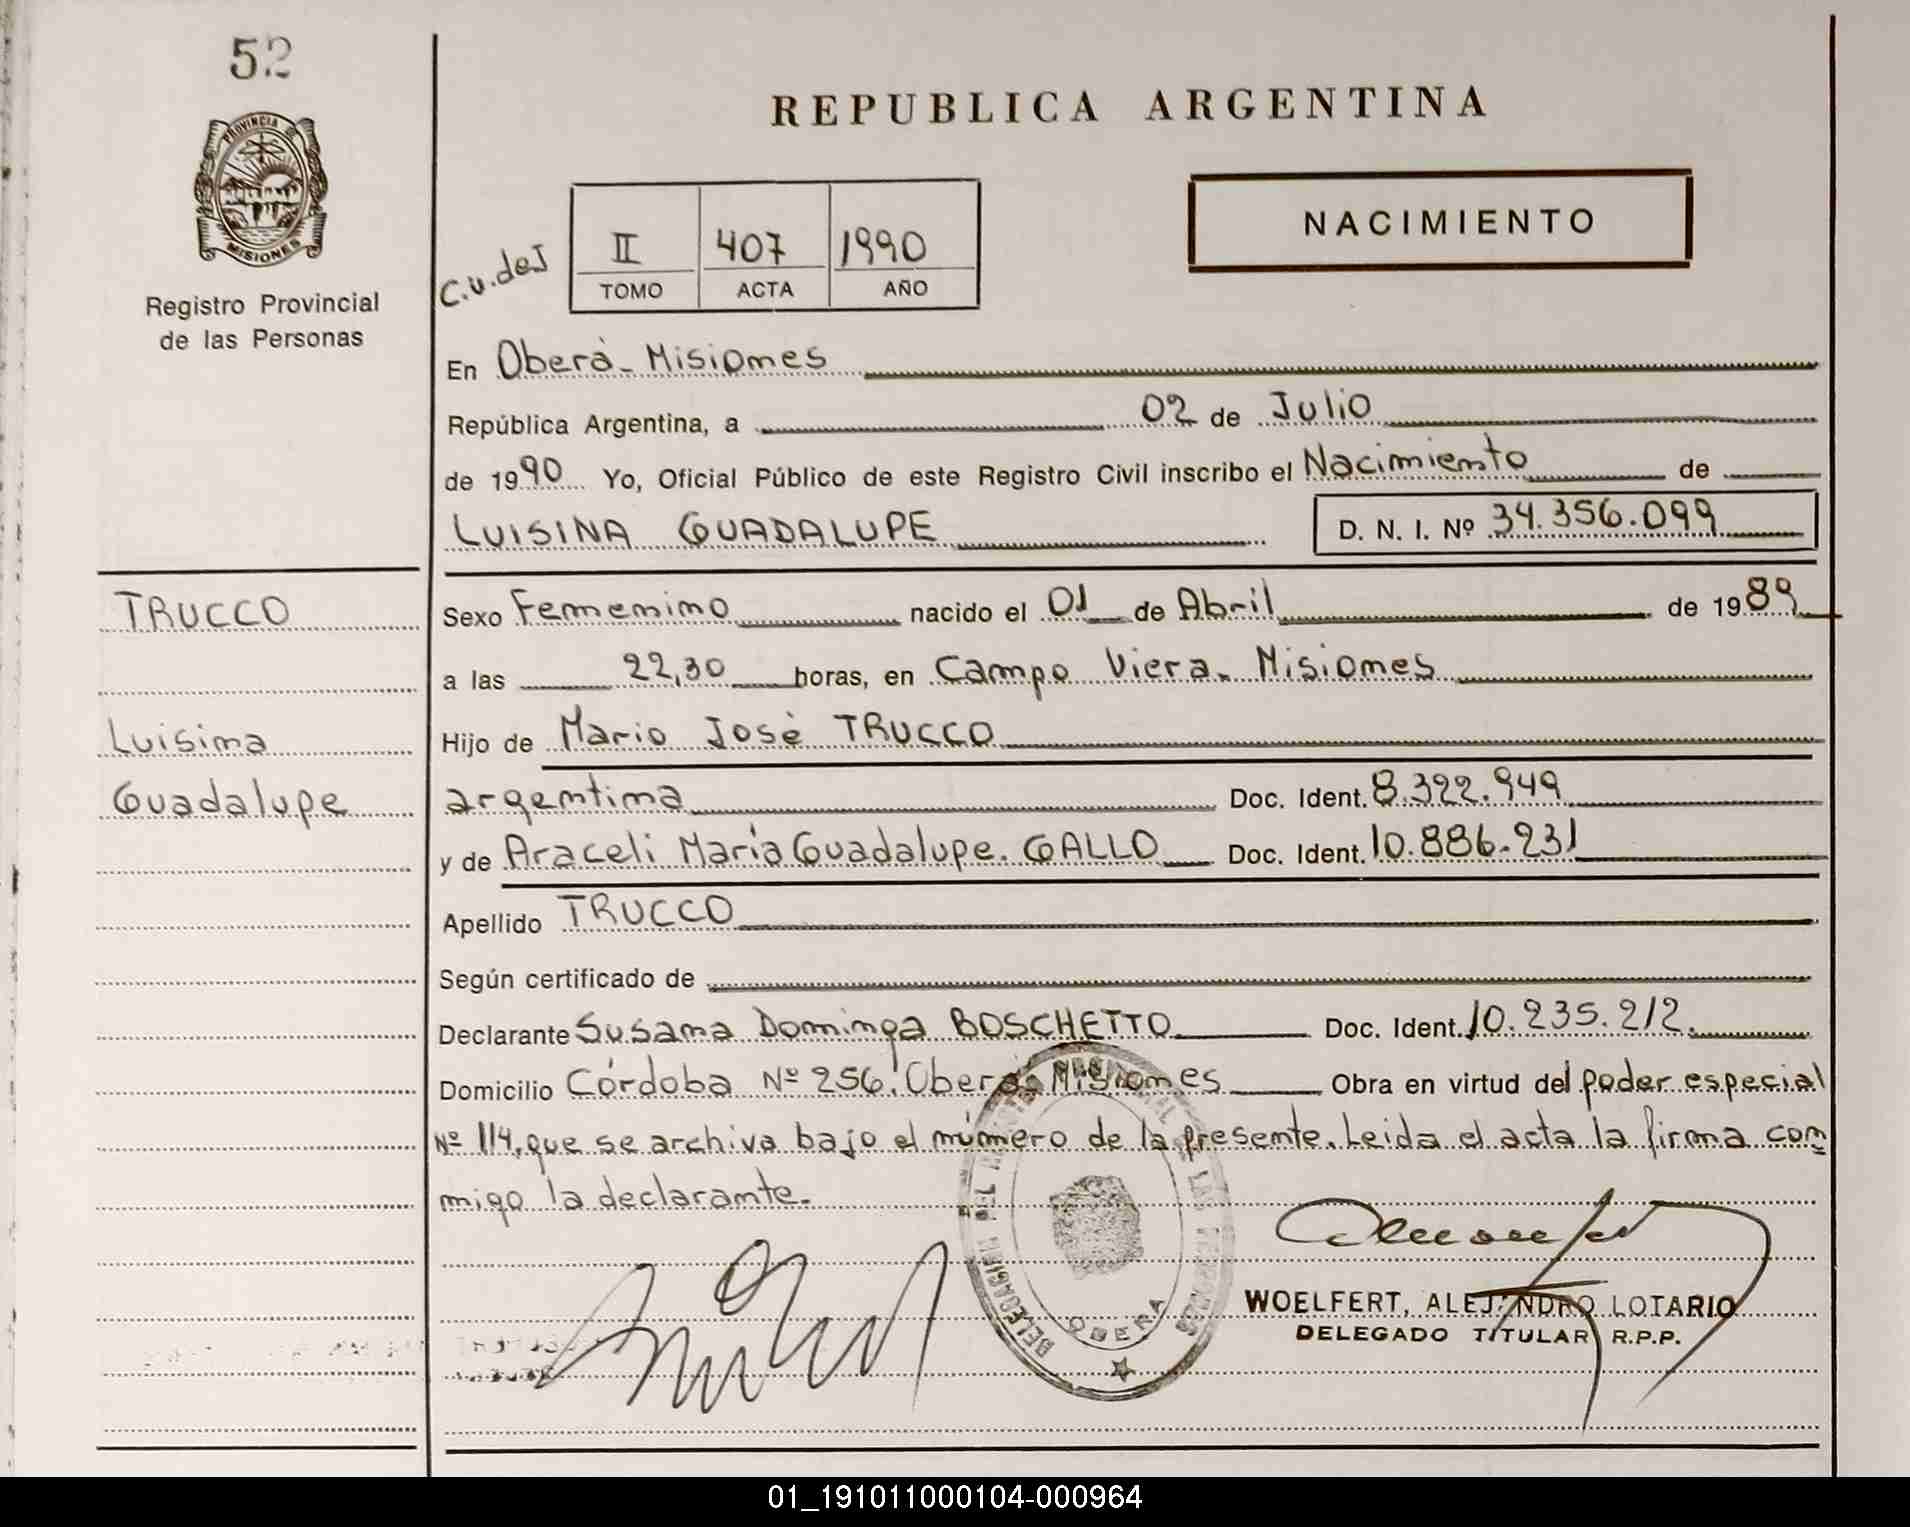 52
REPUBLICA ARGENTINA
PROVINCIA DE
MISIONES
NACIMIENTO
C.U. de J
II 407 1990
TOMO ACTA AÑO
Registro Provincial
de las Personas
En Oberá - Misiones
República Argentina, a 02 de Julio
de 1990 Yo, Oficial Público de este Registro Civil inscribo el Nacimiento de
LUISINA GUADALUPE D. N. I. Nº 34.356.099
TRUCCO
Luisina
Guadalupe
Sexo Femenino nacido el 01 de Abril de 1989
a las 22,30 horas, en Campo Viera - Misiones
Hijo de Mario José TRUCCO
argentina Doc. Ident. 8.322.949
y de Araceli María Guadalupe GALLO Doc. Ident. 10.886.231
Apellido TRUCCO
Según certificado de
Declarante Susana Dominga BOSCHETTO Doc. Ident. 10.235.212.
Domicilio Córdoba Nº 256. Oberá - Misiones Obra en virtud del poder especial
Nº 114, que se archiva bajo el número de la presente. Leida el acta la firma con
migo la declarante.
OBERA
WOELFERT, ALEJANDRO LOTARIO
DELEGADO TITULAR R.P.P.
01_191011000104-000964